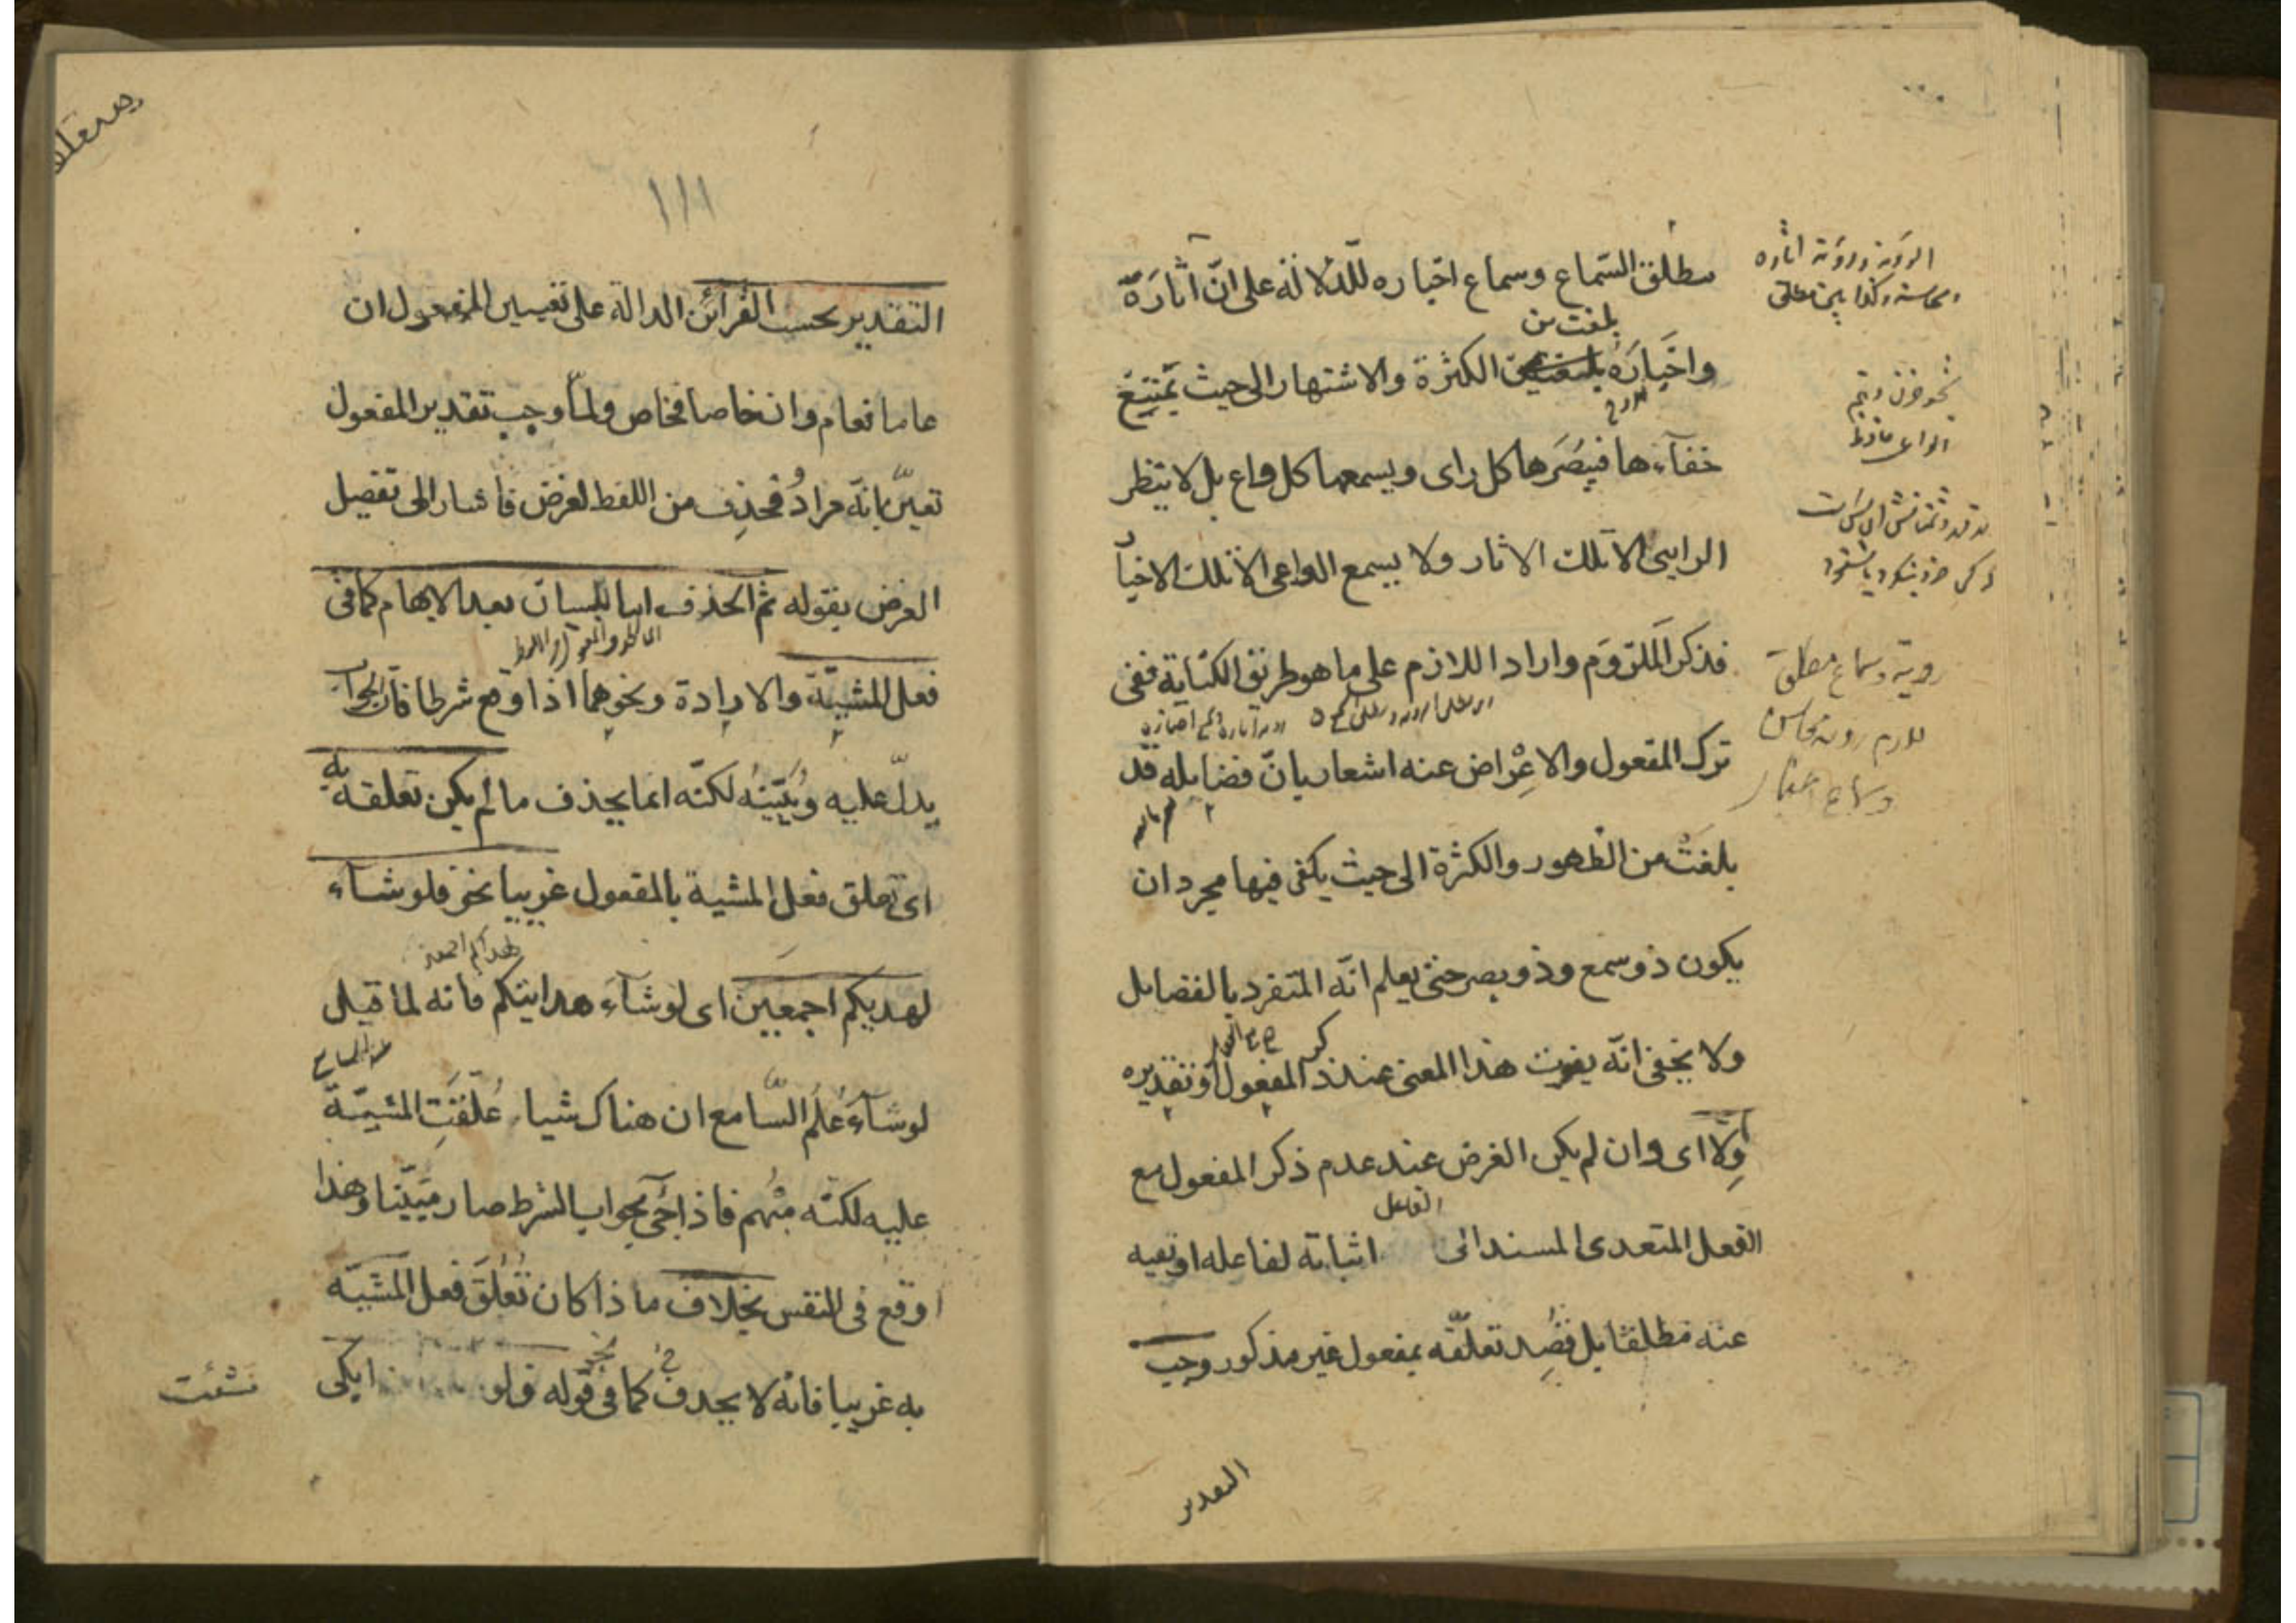 مطلق السّماع وسماع اخباره للدّلالة على انّ اثارَهُ
بلغت من
واخبَارَهُ الكثرة والاشتهار الى حيث يمتنِعُ
خفآءها فيبُصَرها كل راى ويسمعها كل واع بل لا ينظر
الرايى الا تلك الاثار ولا يسمع الواعى الا تلك الاخبا
فذكر المَلزوَم واراد اللازم على ما هو طريق الكناية ففى
ترك المفعول والاعْراض عنه اشعار بانّ فضايله قد
بلغتْ من الظهور والكثرة الى حيث يكفى فيها مجرد ان
يكون ذو سمع وذو بصر حتى يعلم انّه المتفرد بالفضايل
ولا يخفى انّه يفوت هذا المعنى عند ذكر المفعول او تقديره
وِالّا اى وان لم يكن الغرض عند عدم ذكر المفعول مع
الفاعل
الفعل المتعدى المسند الى اثباته لفاعله او نفيه
عنه مطلقا بل قُصِد تعلّقه بمفعول غير مذكور وجب
التقدير
رويته وسماع مطلق
١١١
التقدير بحسب القرائن الدالة على تعيين المفعول ان
عاما فعام وان خاصا فخاص ولمّا وجب تقدير المفعول
تعيّن بانّه مرادُ فحُذِف من اللفظ لغرض فاشار الى تفصيل
الغرض بقوله ثم الحذف اما للبيان بعد الابهام كما فى
فعل المشيّة والارادة ونحوهما اذا وقع شرطا فان الجواب
يدلّ عليه ويُبَيّنهُ لكنّه انما يحذف ما لم يكن تعلقه به
اى تعلق فعل المشية بالمفعول غريبا نحو فلو شآء
لهديكم اجمعين اى لو شآء هدايتكم فانه لما قيل
لو شآءَ عُلم السّامع ان هناك شيا عُلِّقَتِ المشيّة
عليه لكنّه مبُهم فاذا جُىَ بجواب الشرط صار مبيّنا وهذا
اوقع فى النفس بخلاف ما ذا كان تعُلق فعل المشيّة
به غريبا فانه لا يحذف كما فى قوله ولو ابكى
شئت